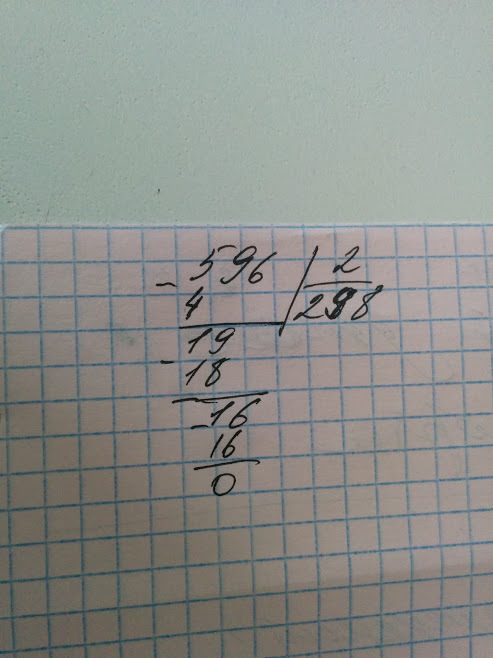 - 596 | 2
4 298
19
- 18
- 16
16
0